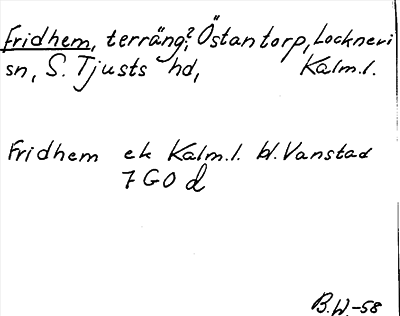 Fridhem, terräng?, Östantorp, Lockneví
sn, S. Tjusts hd, Kalm.l.
Fridhem ek Kalm.l. bl. Vanstad
7 G0 d
B.W.-58